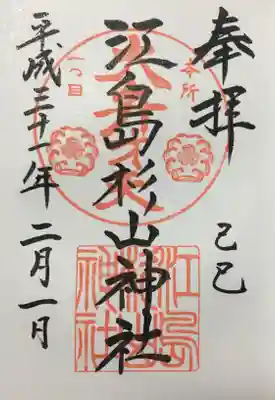 奉拝
己巳
江島杉山神社
平成三十一年 二月一日
本所
一つ目
江島
杉山
神社